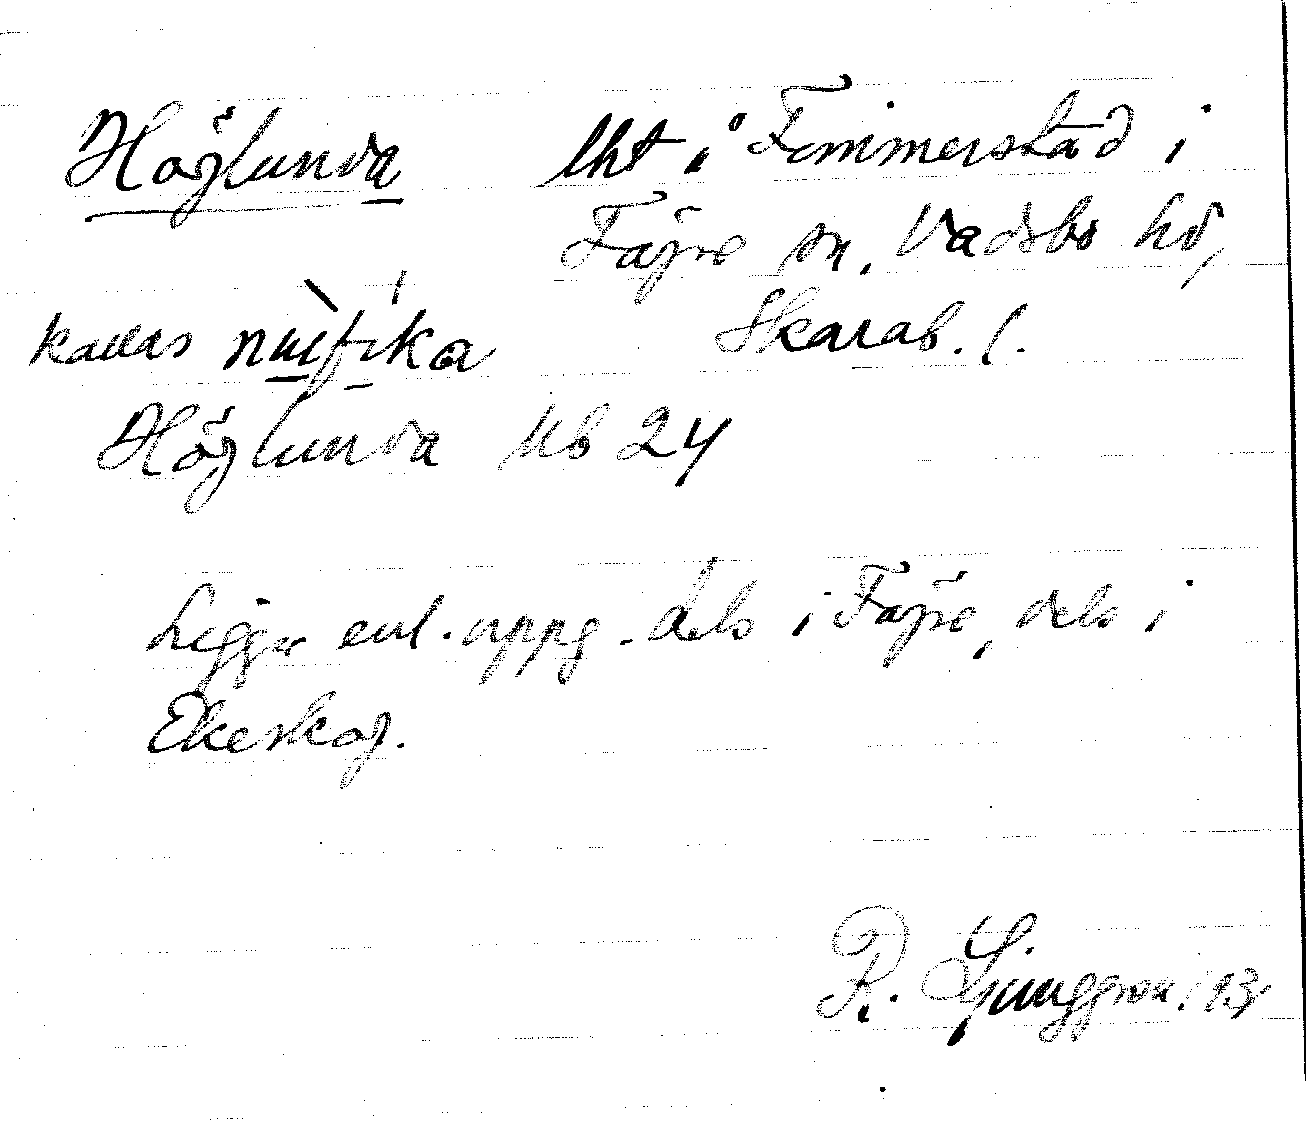 Höglunda lht i Fimmerstad i
Fägre sn, Vadsbo hd,
kallas Skarab. l.
Höglunda Ub 24
Ligger enl. uppg. dels i Fägre, dels i
Ekeskog.
R. Ljunggren